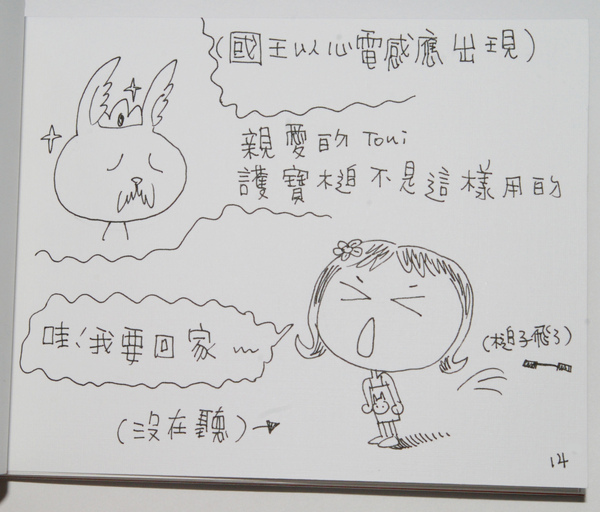 (國王以心電感應出現)
親愛的 Toni
護寶槌不是這樣用的
哇!我要回家~
(槌子飛了)
(沒在聽)→
14